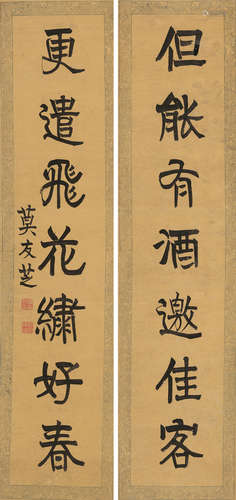 但能有酒邀佳客
更遣飛花繡好春
莫友芝